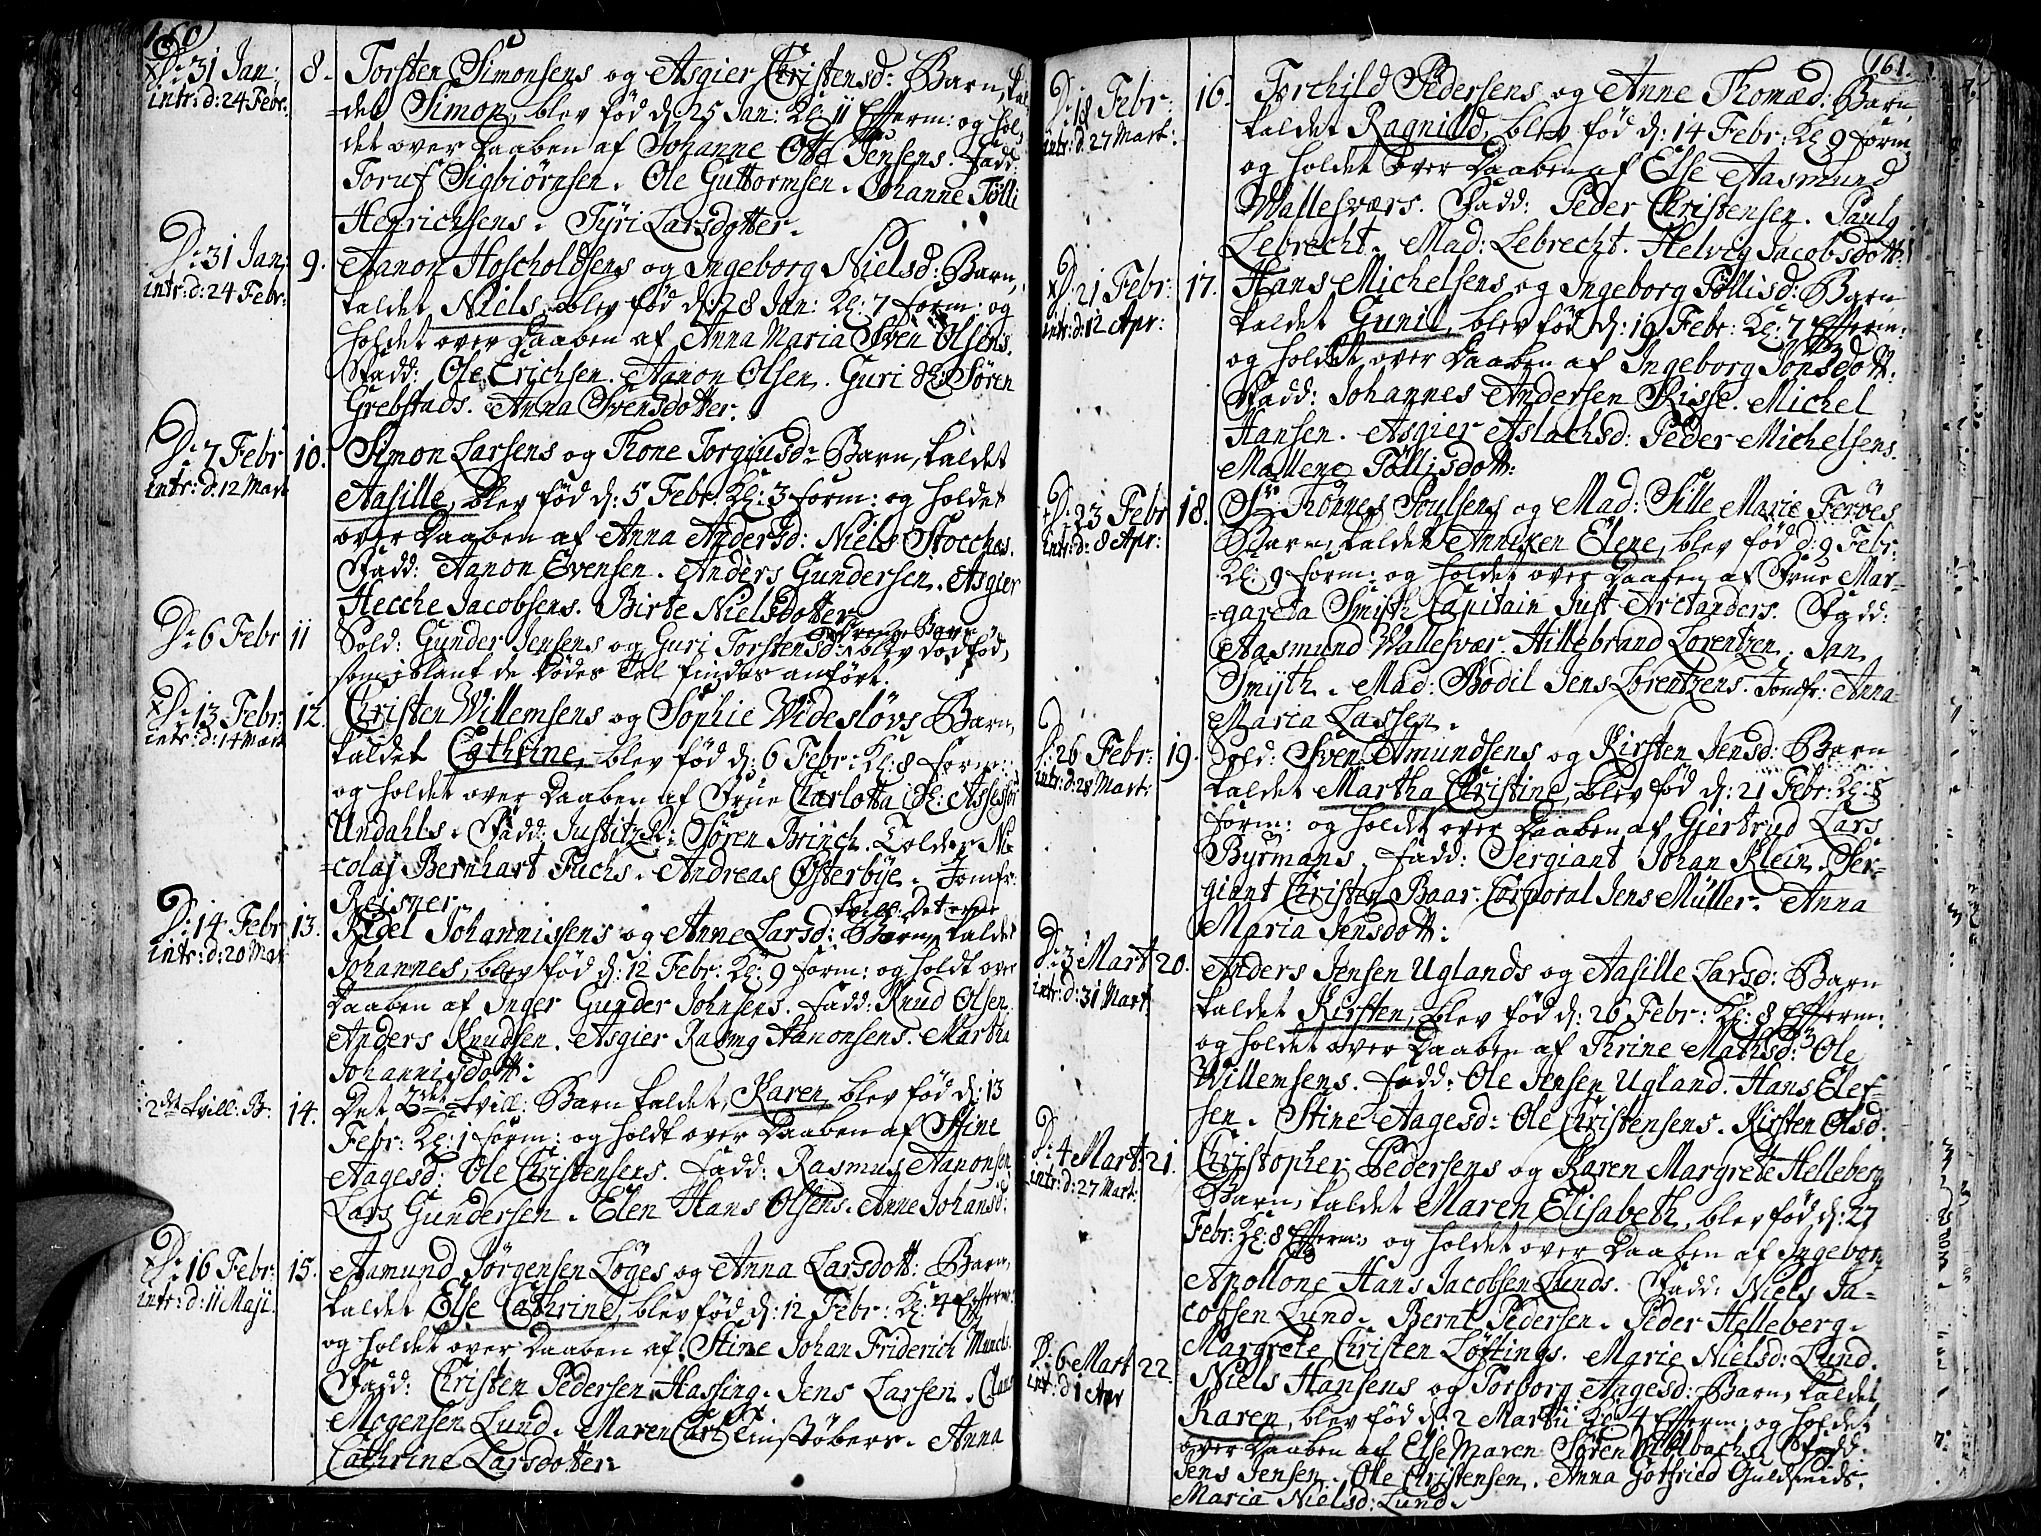 160
D: 31 Jan:
intr: d: 24 Febr:
8. Torsten Simonsens og Asgier Christensd: Barn, kal-
=det Simon, blev fød d: 25 Jan: Kl: 11 Efterm: og hol-
det over Daaben af Johanne Ole Jensens. Fadd:
Toruf Sigbiørnsen. Ole Guttormsen. Johanne Tølli
Henrichsens. Tyri Larsdotter.
D: 31 Jan:
intr: d: 24 Febr:
9. Aanon Hoscholdsens og Ingeborg Nielsd: Barn,
kaldet Niels, blev fød d: 28 Jan: Kl: 7 form: og
holdet over Daaben af Anna Maria Sven Olsens.
Fadd: Ole Erichsen. Aanon Olsen. Guri Søren
Grebstads. Anna Svensdotter.
D: 7 Febr
intr: d: 12 Mart
10. Simon Larsens og Thone Torgiusd: Barn, kaldet
Aasille, blev fød d: 5 Febr: Kl: 3 form: og holdet
over Daaben af Anna Andersd: Niels Stocchas.
Fadd: Aanon Evensen. Anders Gundersen. Asgier
Hecche Jacobsens. Birte Nielsdotter
D: 6 Febr
11 Sold: Gunder Jensens og Guri Torstensd: Barn blev dødfød,
som iblant de Dødes Tal findes anført.
D: 13 Febr:
intr: d: 14 Mart
12. Christen Willemsens og Sophie Wideslövs Barn,
kaldet Cathrine, blev fød d: 6 Febr: Kl: 8 form:
og holdet over Daaben af Frue Charlotta Assessor
Undahls. Fadd: Justitz R: Søren Brinch. Tolder Ni-
=colaj Bernhart Fuchs. Andreas Østerbye. Jomfr:
Reisner.
D: 14 Febr
intr: d: 20 Mart
13. Kidel Johannissens og Anne Larsd: tvill: Barn, kaldet
Johannes, blev fød d: 12 Febr: Kl: 9 form: og holdt over
Daaben af Inger Gunder Johnsens. Fadd: Knud Olsen.
Anders Knudsen. Asgier Rasmg Aanonsens. Martha
Johannisdott:
2det tvill: B:
14. Det 2det tvill: Barn kaldet, Karen, blev fød d: 13
Febr: Kl: 1 form: og holdt over Daaben af Stine
Aagesd: Ole Christensens. Fadd: Rasmus Aanonsen,
Lars Gundersen. Elen Hans Olsens. Anne Johansd:
D: 16 Febr:
intr: d: 11 Maji.
15. Aamund Jørgensen Løges og Anna Larsdott: Barn,
kaldet Else Cathrine, blev fød d: 12 Febr: Kl: 4 Efterm:
og holdet over Daaben af Stine Johan Friderich Munchs.
Fadd: Christen Pedersen Hassing. Jens Larsen. Claus
Mogensen Lund. Maren Carl Einstøbers. Anna
Cathrine Larsdotter
161.
D: 18 Febr:
intr: d: 27 Mart:
16. Torchild Pedersens og Anne Thomæd: Barn,
kaldet Ragnild, blev fød d: 14 Febr: Kl 9 form:
og holdet over Daaben af Else Aasmund
Wallesværs. Fadd: Peder Christensen. Paul
Lebrecht. Mad: Lebrecht. Helvig Jacobsdott:
D: 21 Febr:
intr: d: 12 Apr:
17. Hans Michelsens og Ingeborg Tøllisd: Barn
kaldet Gunil, blev fød d: 19 Febr: Kl: 7 Efterm:
og holdet over Daaben af Ingeborg Jonsdott:
Fadd: Johannes Andersen Risse. Michel
Hansen. Asgier Aslachsd: Peder Michelsens.
Mallene Tøllisdott:
D: 23 Febr
intr: d: 8 Apr:
18. Sr Tönnes Poulsens og Mad: Sille Marie Ferøes
Barn, kaldet Anneken Elene, blev fød d: 9 Febr:
Kl: 9 form: og holdet over Daaben af Frue Mar-
=gareta Smith Capitain Just Arctanders. Fadd:
Aasmund Wallesvær. Hillebrand Lorentzen. Jan
Smÿth. Mad: Bodil Jens Lorentzens. Jomfr: Anna
Maria Lassen.
D: 26 Febr:
intr: d: 28 Mart:
19. Sold: Sven Amundsens og Kirsten Jensd: Barn
kaldet Martha Christine, blev fød d: 21 Febr: Kl: 8
form: og holdet over Daaben af Giertrud Lars
Byrmans. Fadd: Sergiant Johan Klein. Ser-
giant Christen Baar. Corporal Jens Müller. Anna
Maria Jensdott:
D: 3 Mart
intr: d: 31 Mart
20. Anders Jensen Uglands og Aasille Larsd: Barn
kaldet Kirsten, blev fød d: 26 Febr: Kl: 8 Efterm:
og holdet over Daaben af Thrine Mathsd: Ole
Willemsens. Fadd: Ole Jensen Ugland. Hans Elef-
sen. Stine Aagesd: Ole Christensens. Kirsten Olsd:
D: 4 Mart:
intr: d: 27 Mart:
21. Christopher Pedersens og Karen Margrete Helleberg
Barn, kaldet Maren Elisabeth, blev fød d: 27
Febr: Kl: 8 Efterm: og holdet over Daaben af Ingeborg
Apollone Hans Jacobsen Lunds. Fadd: Niels Ja-
cobsen Lund. Bernt Pedersen. Peder Helleberg.
Margrete Christen Løftings. Marie Nielsd: Lund.
D: 6 Mart
intr: d 1 Apr
22 Niels Hansens og Torborg Aagesd: Barn, kaldet
Karen, blev fød d: 2 Martii Kl: 4 Efterm: og holdet
over Daaben af Else Maren Søren Fadd:
Jens Jensen. Ole Christensen. Anna Gotfried Guldsmids.
Maria Nielsd: Lund.